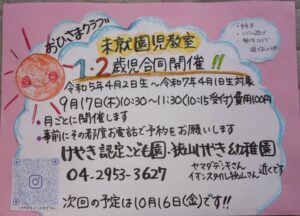 おひさまクラブ
未就園児教室
1・2歳児合同開催!!
令和5年4月2日生〜令和7年4月1日生対象
9月17日(木)10:30〜11:30(10:15受付)費用100円
・月ごとに開催します
・事前にその都度お電話で予約をお願いします
けやき認定こども園・狭山けやき幼稚園
04-2953-3627
ヤマダデンキさん
イオンスタイル狭山さん
近くです
次回の予定は10月16日(金)です!!